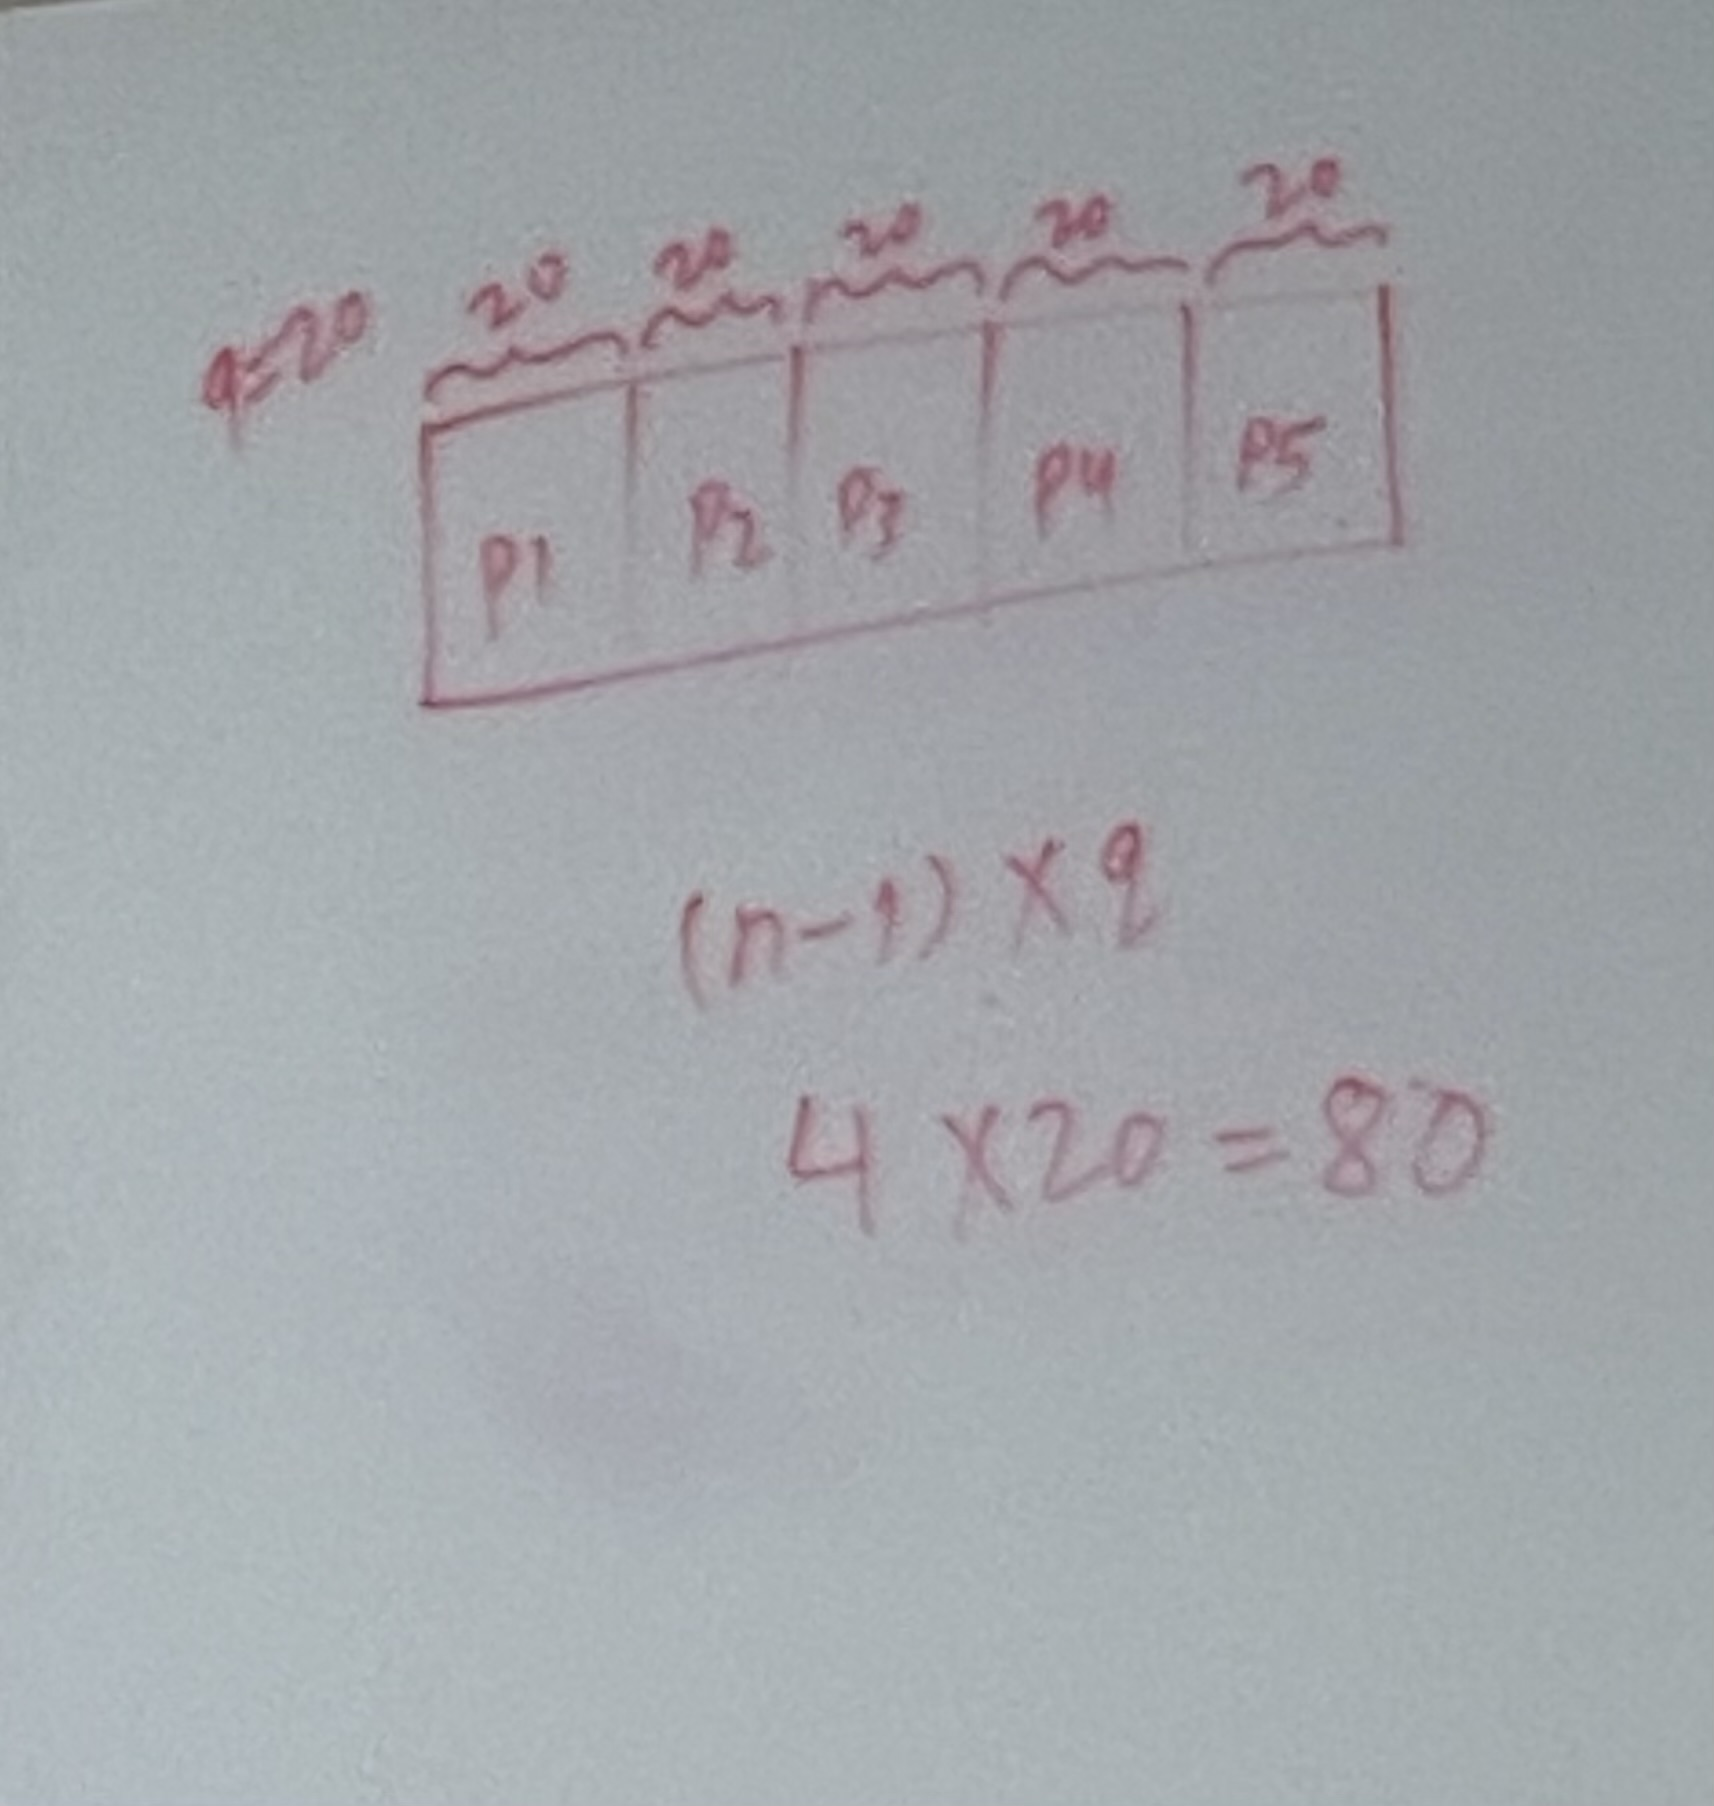 q=20 20 20 20 20 20
P1 P2 P3 P4 P5
(n-1) X q
4 X 20 = 80